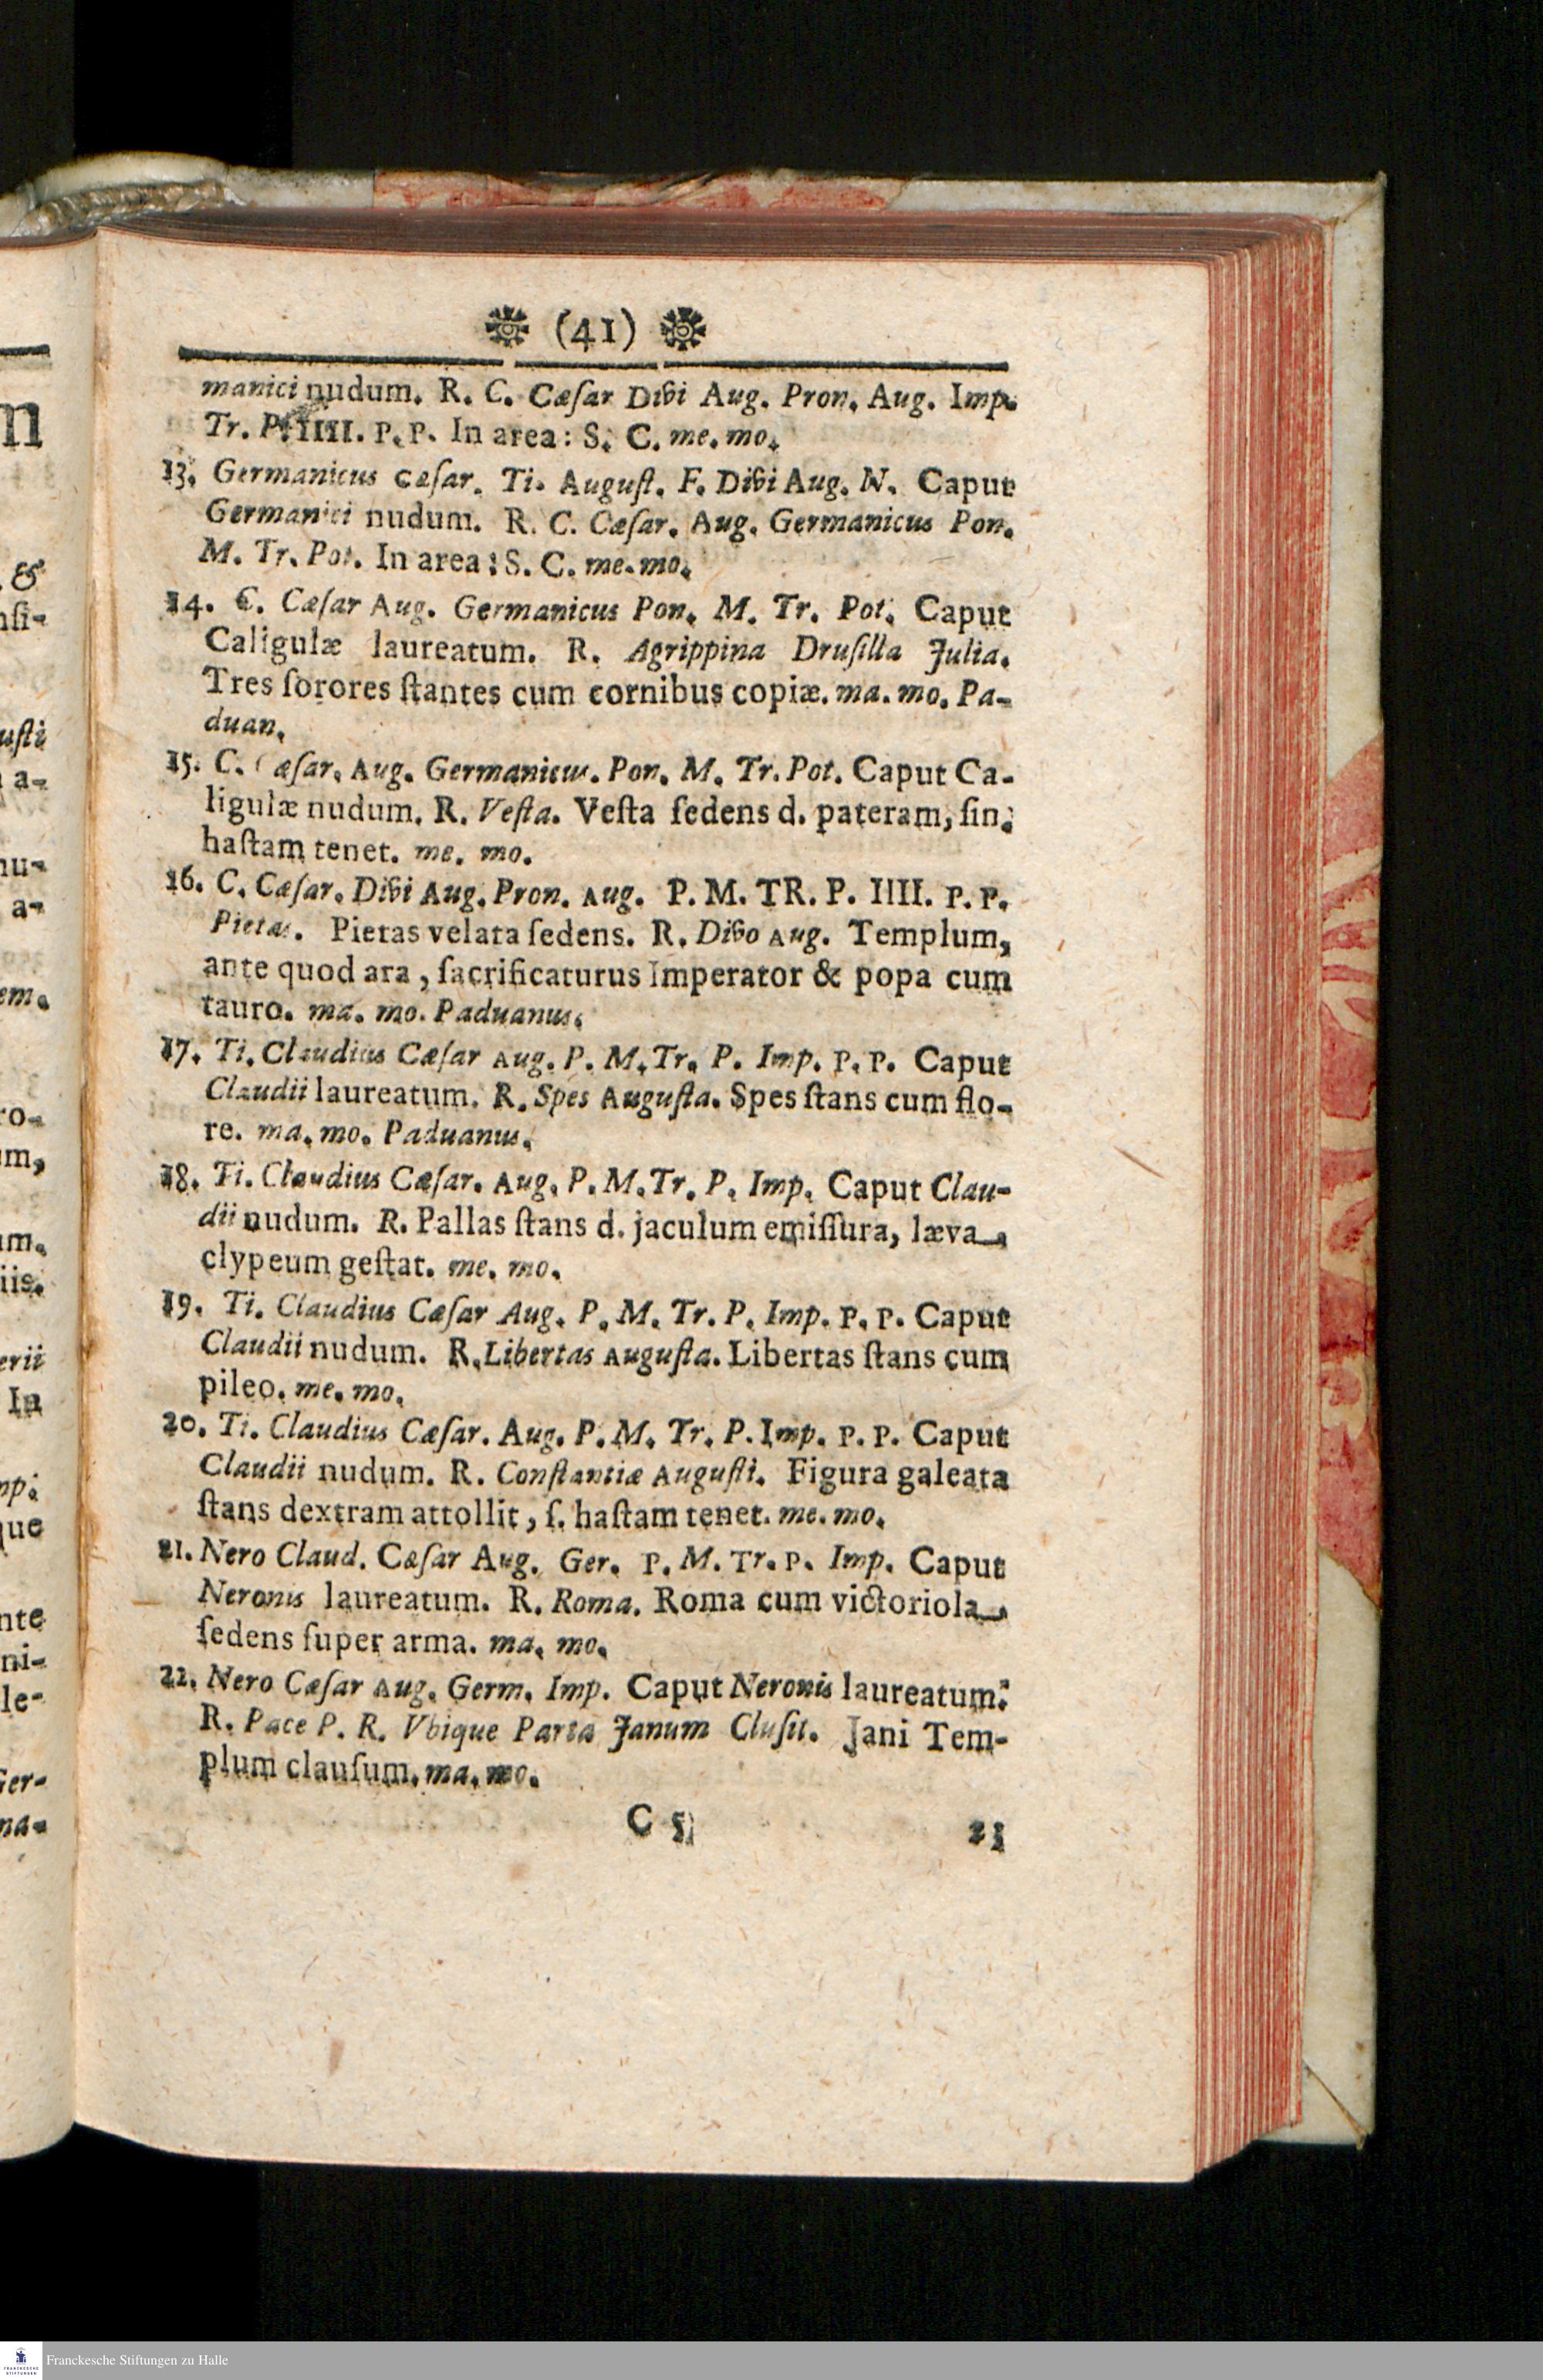 (41)
manici nudum. R. C. Cæſar Divi Aug. Pron. Aug. Imp.
Tr. P. IIII. P. P. In area: S. C. me. mo.
13. Germanicus Cæſar. Ti. Auguſt. F. Divi Aug. N. Caput
Germanici nudum. R. C. Cæſar. Aug. Germanicus Pon.
M. Tr. Pot. In area: S. C. me. mo.
14. C. Cæſar Aug. Germanicus Pon. M. Tr. Pot. Caput
Caligulæ laureatum. R. Agrippina Druſilla Julia.
Tres ſorores ſtantes cum cornibus copiæ. ma. mo. Pa-
duan.
15. C. Cæſar. Aug. Germanicus. Pon. M. Tr. Pot. Caput Ca-
ligulæ nudum. R. Veſta. Veſta ſedens d. pateram, ſin.
haſtam tenet. me. mo.
16. C. Cæſar. Divi Aug. Pron. Aug. P. M. TR. P. IIII. P. P.
Pietas. Pietas velata ſedens. R. Divo Aug. Templum,
ante quod ara, ſacrificaturus Imperator & popa cum
tauro. ma. mo. Paduanus.
17. Ti. Claudius Cæſar Aug. P. M. Tr. P. Imp. P. P. Caput
Claudii laureatum. R. Spes Auguſta. Spes ſtans cum flo-
re. ma. mo. Paduanus.
18. Ti. Claudius Cæſar. Aug. P. M. Tr. P. Imp. Caput Clau-
dii nudum. R. Pallas ſtans d. jaculum emiſſura, læva
clypeum geſtat. me. mo.
19. Ti. Claudius Cæſar Aug. P. M. Tr. P. Imp. P. P. Caput
Claudii nudum. R. Libertas Auguſta. Libertas ſtans cum
pileo. me. mo.
20. Ti. Claudius Cæſar. Aug. P. M. Tr. P. Imp. P. P. Caput
Claudii nudum. R. Conſtantiæ Auguſti. Figura galeata
ſtans dextram attollit, ſ. haſtam tenet. me. mo.
21. Nero Claud. Cæſar Aug. Ger. P. M. Tr. P. Imp. Caput
Neronis laureatum. R. Roma. Roma cum victoriola
ſedens ſuper arma. ma. mo.
22. Nero Cæſar Aug. Germ. Imp. Caput Neronis laureatum.
R. Pace P. R. Vbique Parta Janum Cluſit. Jani Tem-
plum clauſum. ma. mo.
C 5
23
Franckesche Stiftungen zu Halle